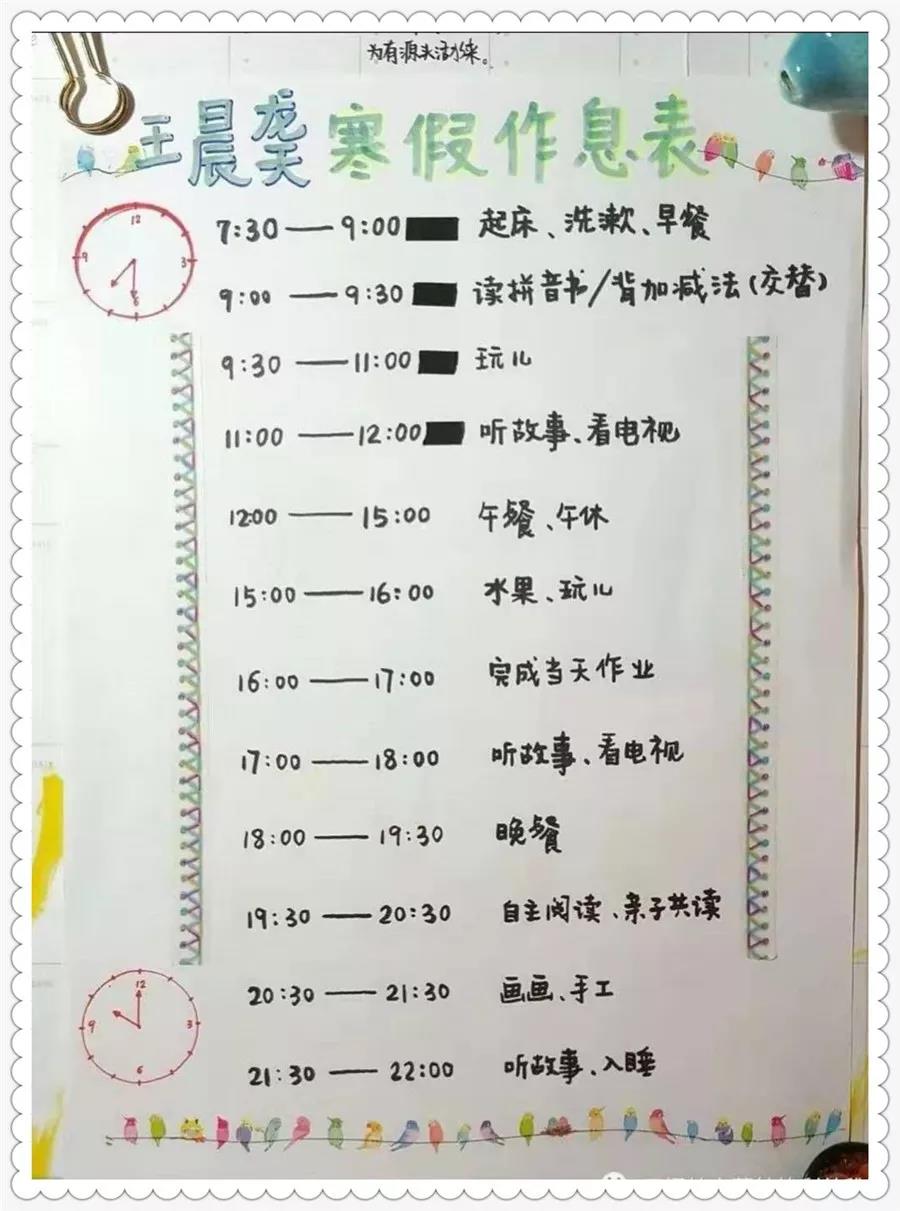 为有源头活水来。
王晨龑寒假作息表
7:30——9:00 起床、洗漱、早餐
9:00——9:30 读拼音书/背加减法(交替)
9:30——11:00 玩儿
11:00——12:00 听故事、看电视
12:00——15:00 午餐、午休
15:00——16:00 水果、玩儿
16:00——17:00 完成当天作业
17:00——18:00 听故事、看电视
18:00——19:30 晚餐
19:30——20:30 自主阅读、亲子共读
20:30——21:30 画画、手工
21:30——22:00 听故事、入睡
12
9 3
6
12
9 3
6